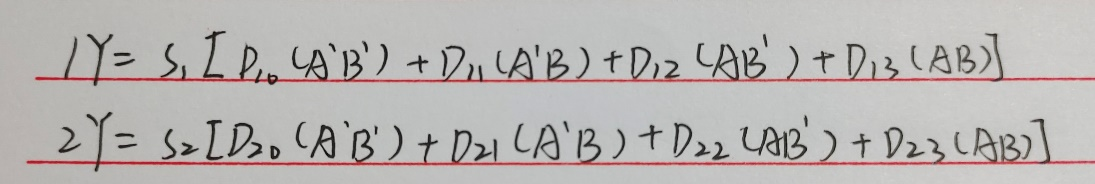 1Y= S₁[D₁₀(A'B')+D₁₁(A'B)+D₁₂(AB')+D₁₃(AB)]
2Y= S₂[D₂₀(A'B')+D₂₁(A'B)+D₂₂(AB')+D₂₃(AB)]